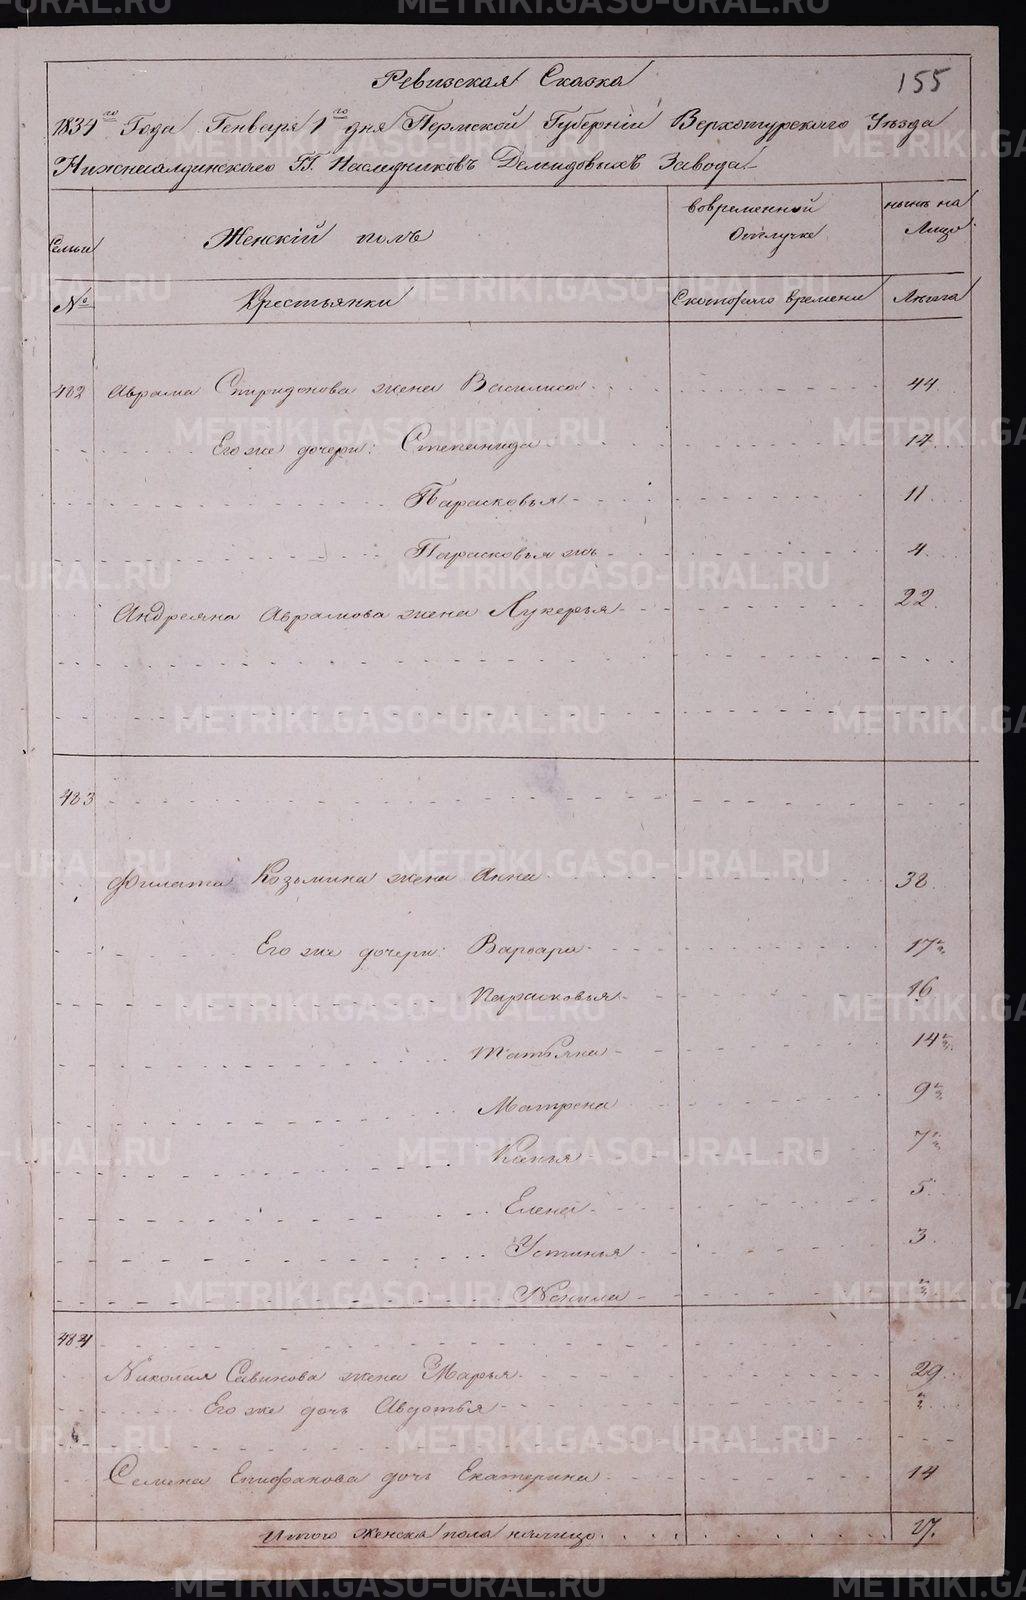 155
Ревизская Сказка
1834го Года Генваря 1го дня Пермской Губернiи Верхотурскаго Уѣзда
Нижнесалдинскаго Гг. Наследниковъ Демидовыхъ Завода
Семьи Женскiй полъ вовременной Отлучке нынѣ на Лицо
№ Крестьянки Скотораго времени Лѣта
482 Аврама Спиридонова жена Василиса 44
Его же дочери: Степанида 14
Парасковья 11
Парасковья жъ 4
Андреяна Аврамова жена Лукерья 22
483
Филата Козьмина жена Анна 38
Его же дочери: Варвара 17½
Парасковья 16
Татьяна 14½
Матрена 9½
Ксенья 7½
Елена 5
Устинья 3
Ненила ½
484
Николая Савинова жена Марья 29
Его же дочь Авдотья ½
Семена Епифанова дочь Екатерина 14
Итого Женска пола налицо 17.
METRIKI.GASO-URAL.RU